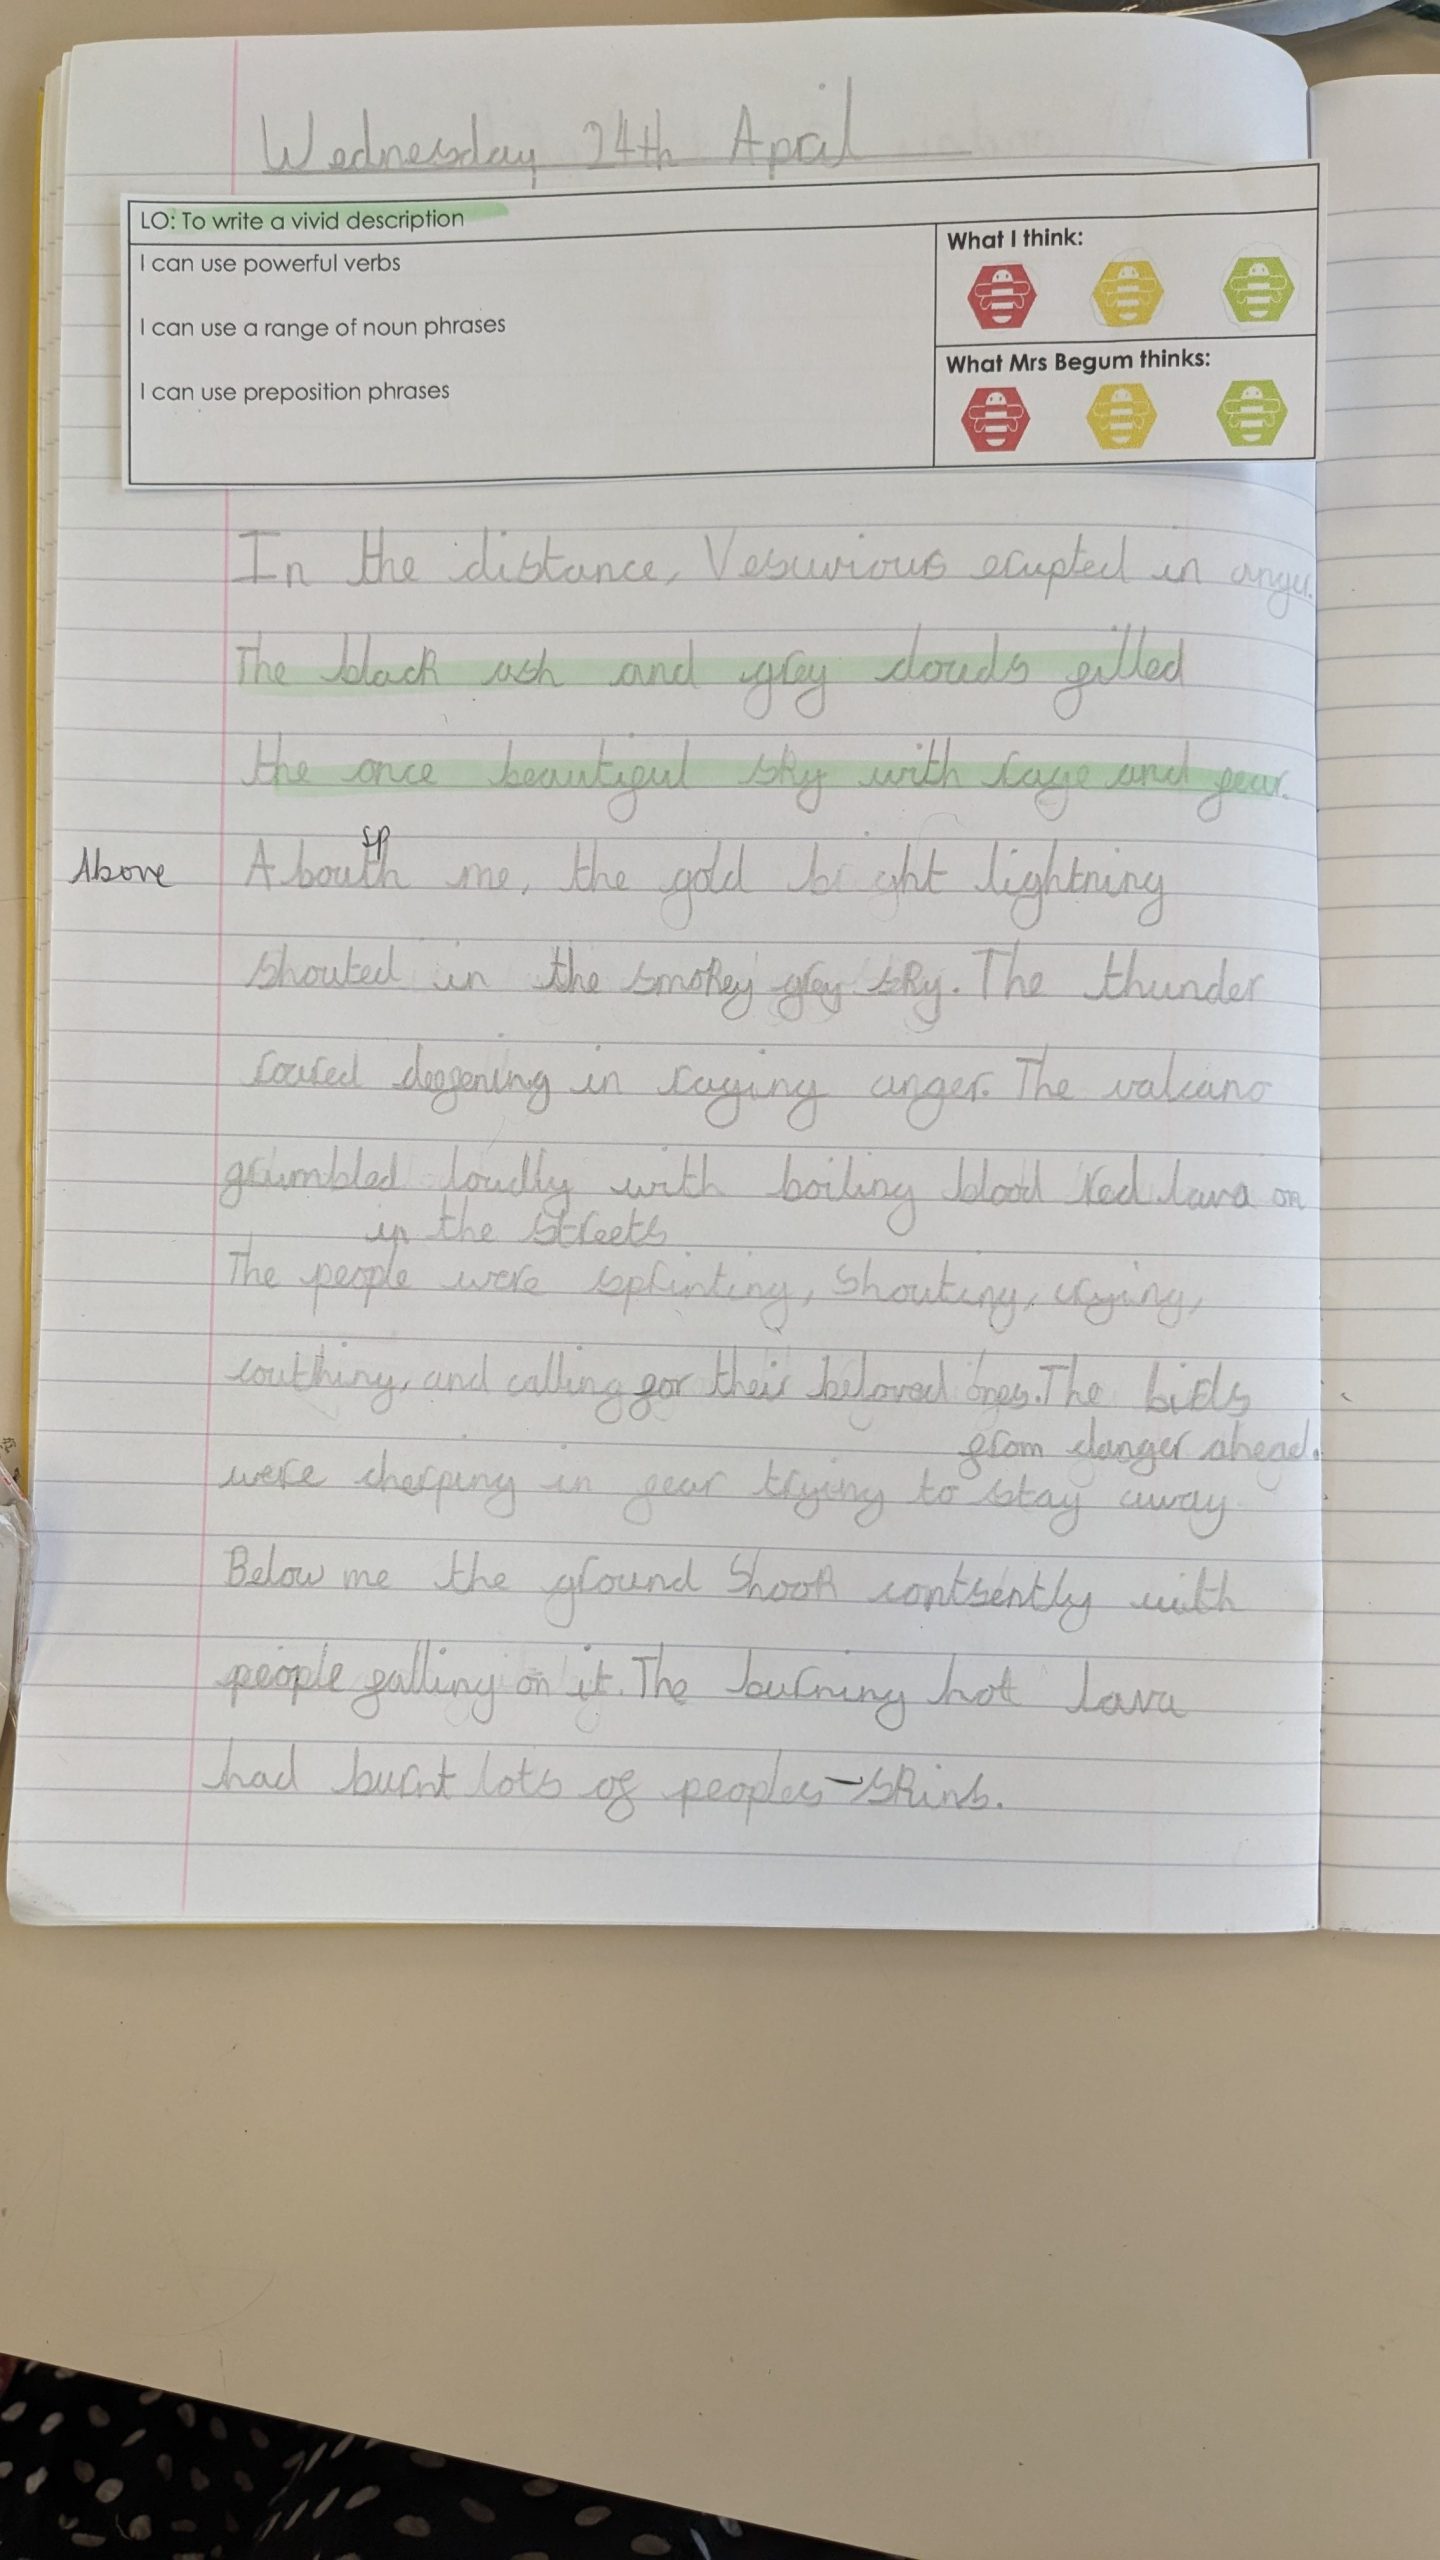 Wednesday 24th April
LO: To write a vivid description
I can use powerful verbs
I can use a range of noun phrases
I can use preposition phrases
What I think:
What Mrs Begum thinks:
In the distance, Vesuvious erupted in anger.
The black ash and grey clouds filled
the once beautiful sky with rage and fear.
sp
Above
Abouth me, the gold bright lightning
shouted in the smokey grey sky. The thunder
roared in raging anger. The valcano
grumbled loudly with boiling blood red lava on
in the streets
The people were sprinting, shouting, crying,
couthing, and calling for their beloved ones. The birds
from danger ahead.
were cherping in fear trying to stay away
Below me the ground shook contsently with
people falling on it. The burning hot lava
had burnt lots of peoples skins.